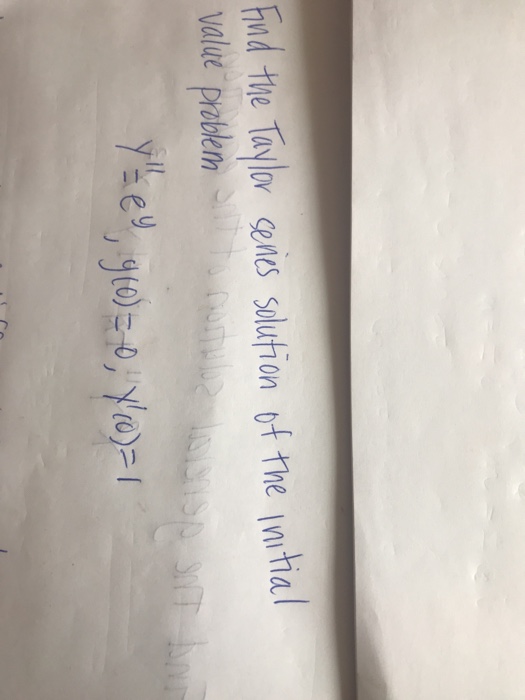 Find the Taylor series solution of the initial
value problem
y" = e^y, y(0) = 0, y'(0) = 1